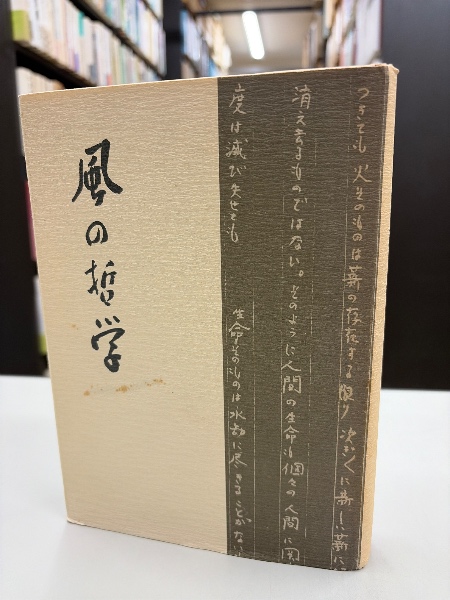 風の哲学
つきても火そのものは薪の存在する限り次ぎ〱に新しい薪に
消え去るものではない。そのように人間の生命も個々の人間に
度は滅び失せても 生命そのものは永劫に尽きることがない